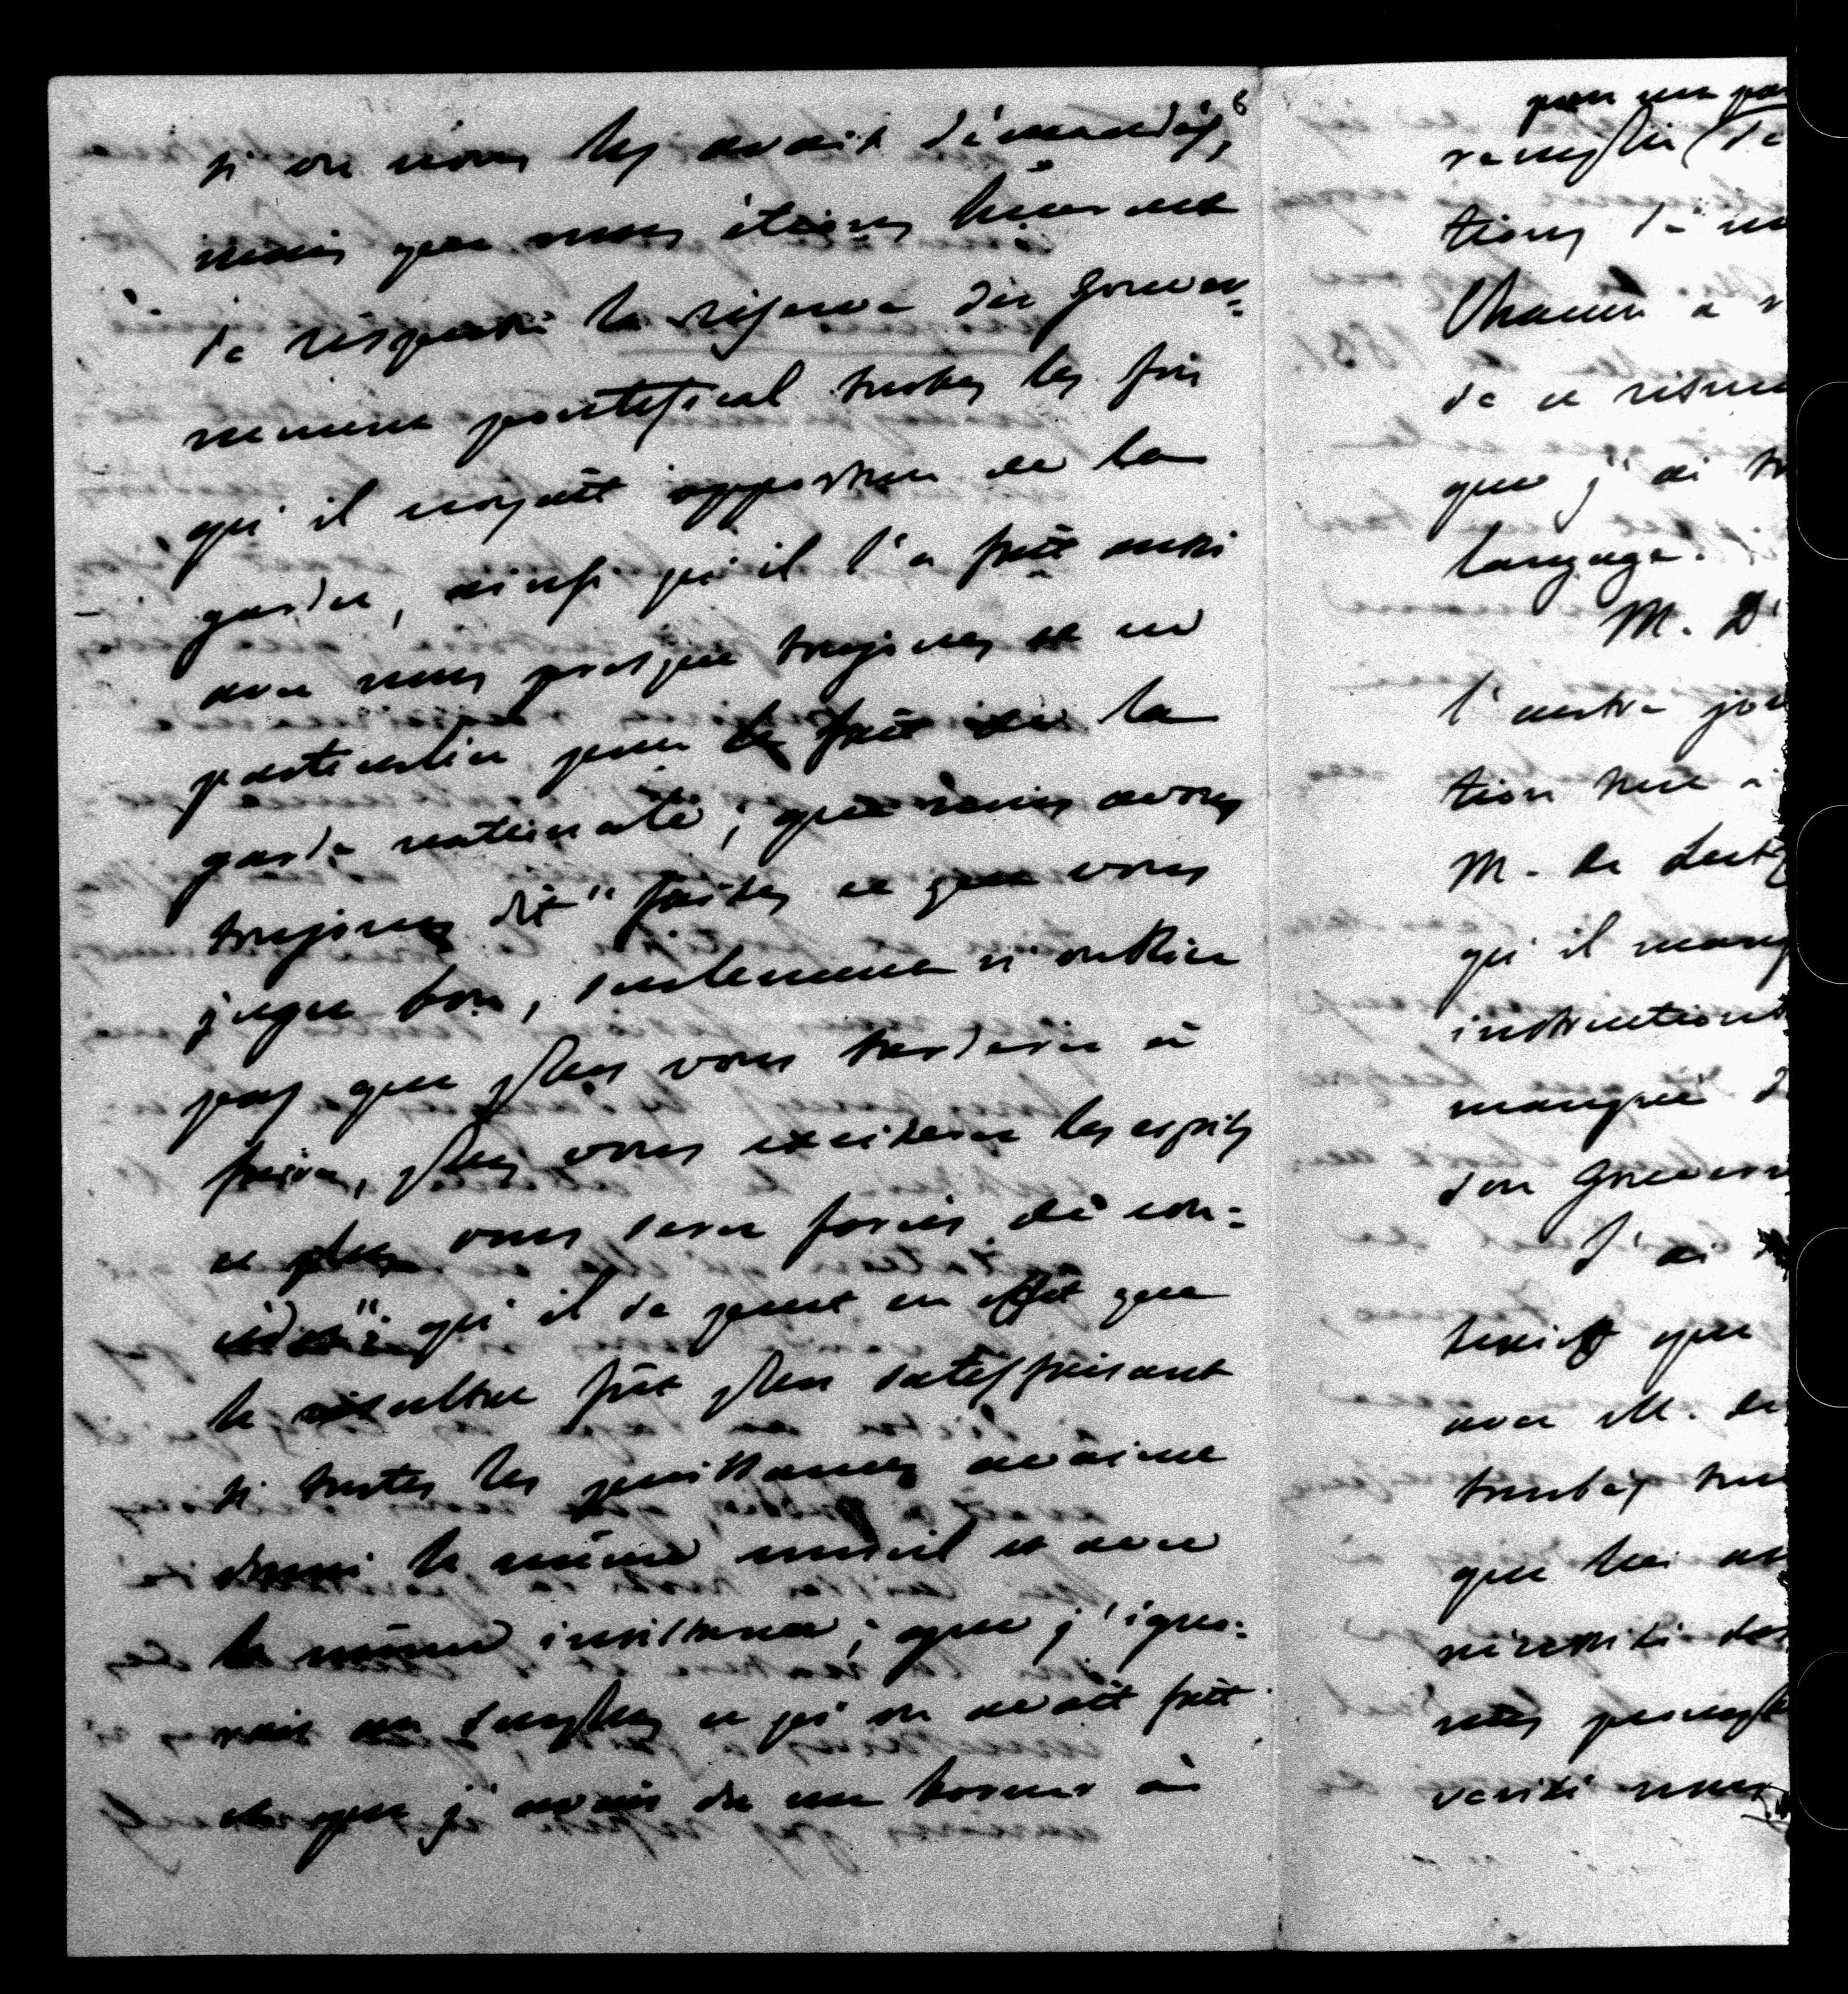 6
si on nous les avait demandés,
mais que nous étions heureux
de respecter la réserve du gouver-
nement pontifical toutes les fois
qu'il croyait opportun de la
garder, ainsi qu'il l'a fait aussi
avec nous presque toujours et en
particulier pour le fait de la
garde nationale; que nous avons
toujours dit "faites ce que vous
jugez bon, seulement n'oubliez
pas que plus vous tarderez à
faire, plus vous exciterez les esprits
et plus vous serez forcés de con-
céder"; qu'il se peut en effet que
le résultat fût plus satisfaisant
si toutes les puissances avaient
donné le même conseil et avec
la même insistance; que j'igno-
rais au surplus ce qu'on avait fait
et que j'avais dû me borner à
pour ma par
remplir de
tions de
Chacun a
de ce
que j'ai
langage.
M. D
l'autre jou
tion
M. de
qu'il manq
instructions
manqué d
son Gouvern
J'ai
que
avec M. de
que lui
nécessité des